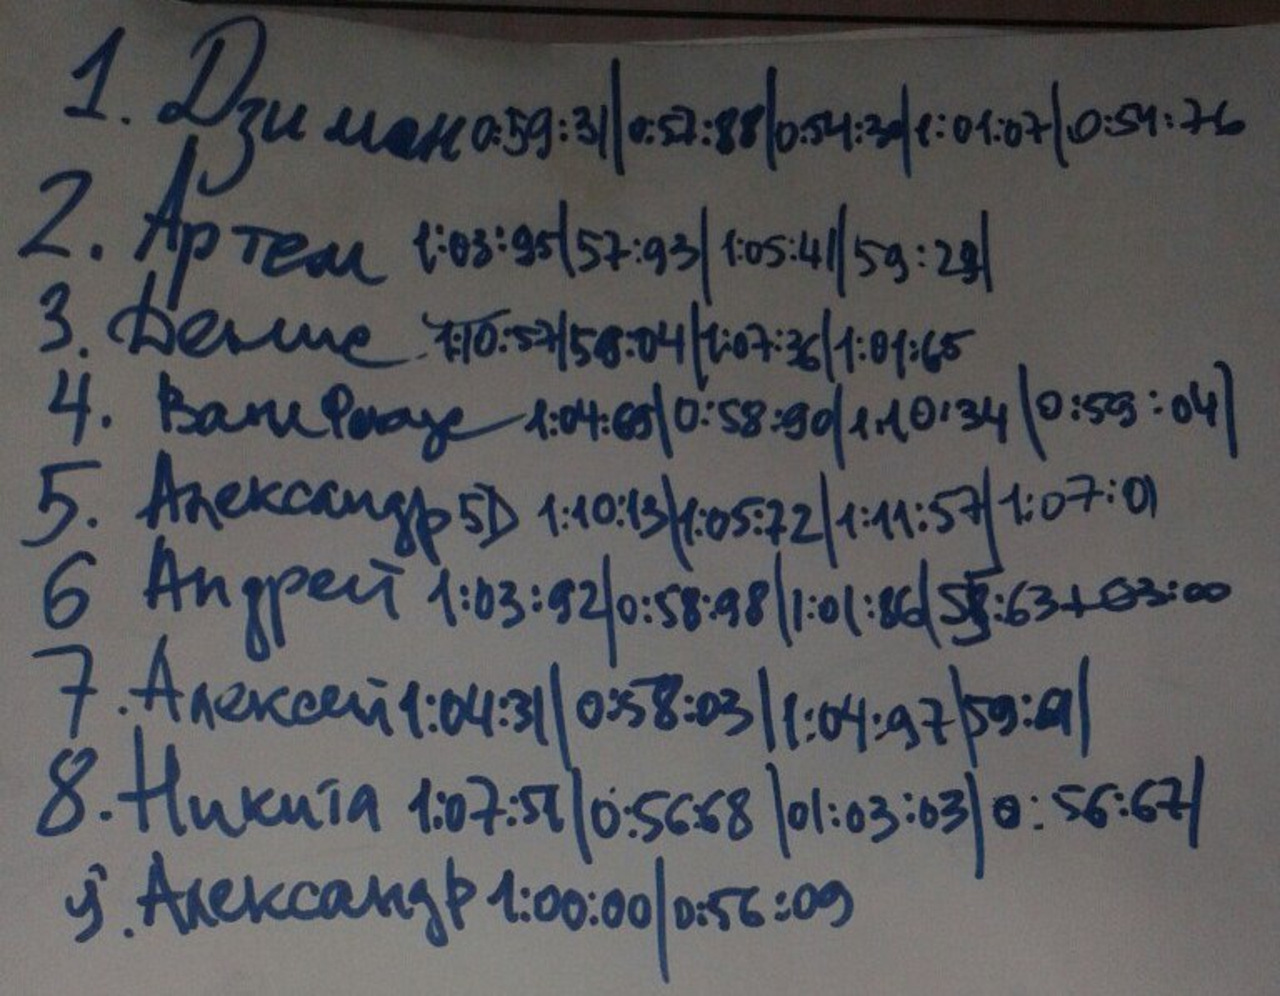 1. Дзиман 0:59:31|0:57:88|0:54:30|1:01:07|0:54:76
2. Артем 1:03:95|57:93|1:05:41|59:29|
3. Денис 1:10:57|58:04|1:07:36|1:01:65
4. Ваня 1:04:69|0:58:90|1:10:34|0:59:04|
5. Александр 5D 1:10:13|1:05:72|1:11:57|1:07:01
6 Андрей 1:03:92|0:58:98|1:01:86|58:63+03:00
7. Алексей 1:04:31|0:58:03|1:04:97|59:01|
8. Никита 1:07:51|0:56:68|01:03:03|0:56:67|
9. Александр 1:00:00|0:56:09